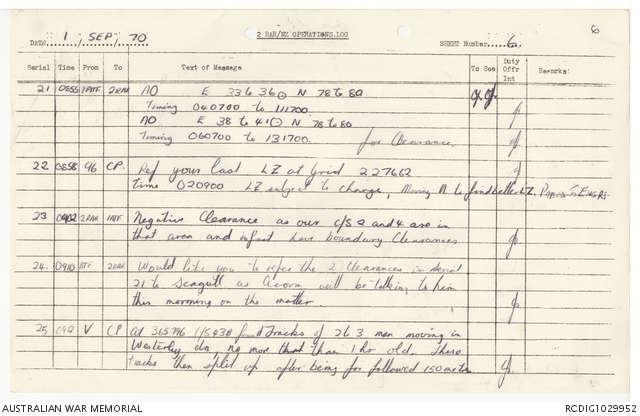 6
2 RAR/NZ OPERATIONS LOG
DATE 1 / SEP / 70 SHEET Number 6
Serial Time From To Text of Message To See Duty Offr Int Remarks
21 0855 1ATF 2RAR AO E 33 to 36 N 78 to 80
Timing 040700 to 111700
AO E 38 to 41 N 78 to 80
Timing 060700 to 131700
for Clearance
22 0858 96 CP. Ref your last LZ at Grid 227662
time 020900 LZ subject to change, Moving N to find better LZ.
23 0902 2RAR 1ATF Negative Clearance as our c/s 2 and 4 are in
that area and infact have boundary Clearances
24 0910 ATF 2RAR Would like you to refer the 2 Clearances in serial
21 to Seagull as Acorn will be talking to him
this morning on the matter.
25 V CP At 365796 C/S 430 found tracks of 2 to 3 men moving in
Westerly dn, no more that than 1 hr old. These
tracks then split up after being for followed 150 metres
AUSTRALIAN WAR MEMORIAL
RCDIG1029952